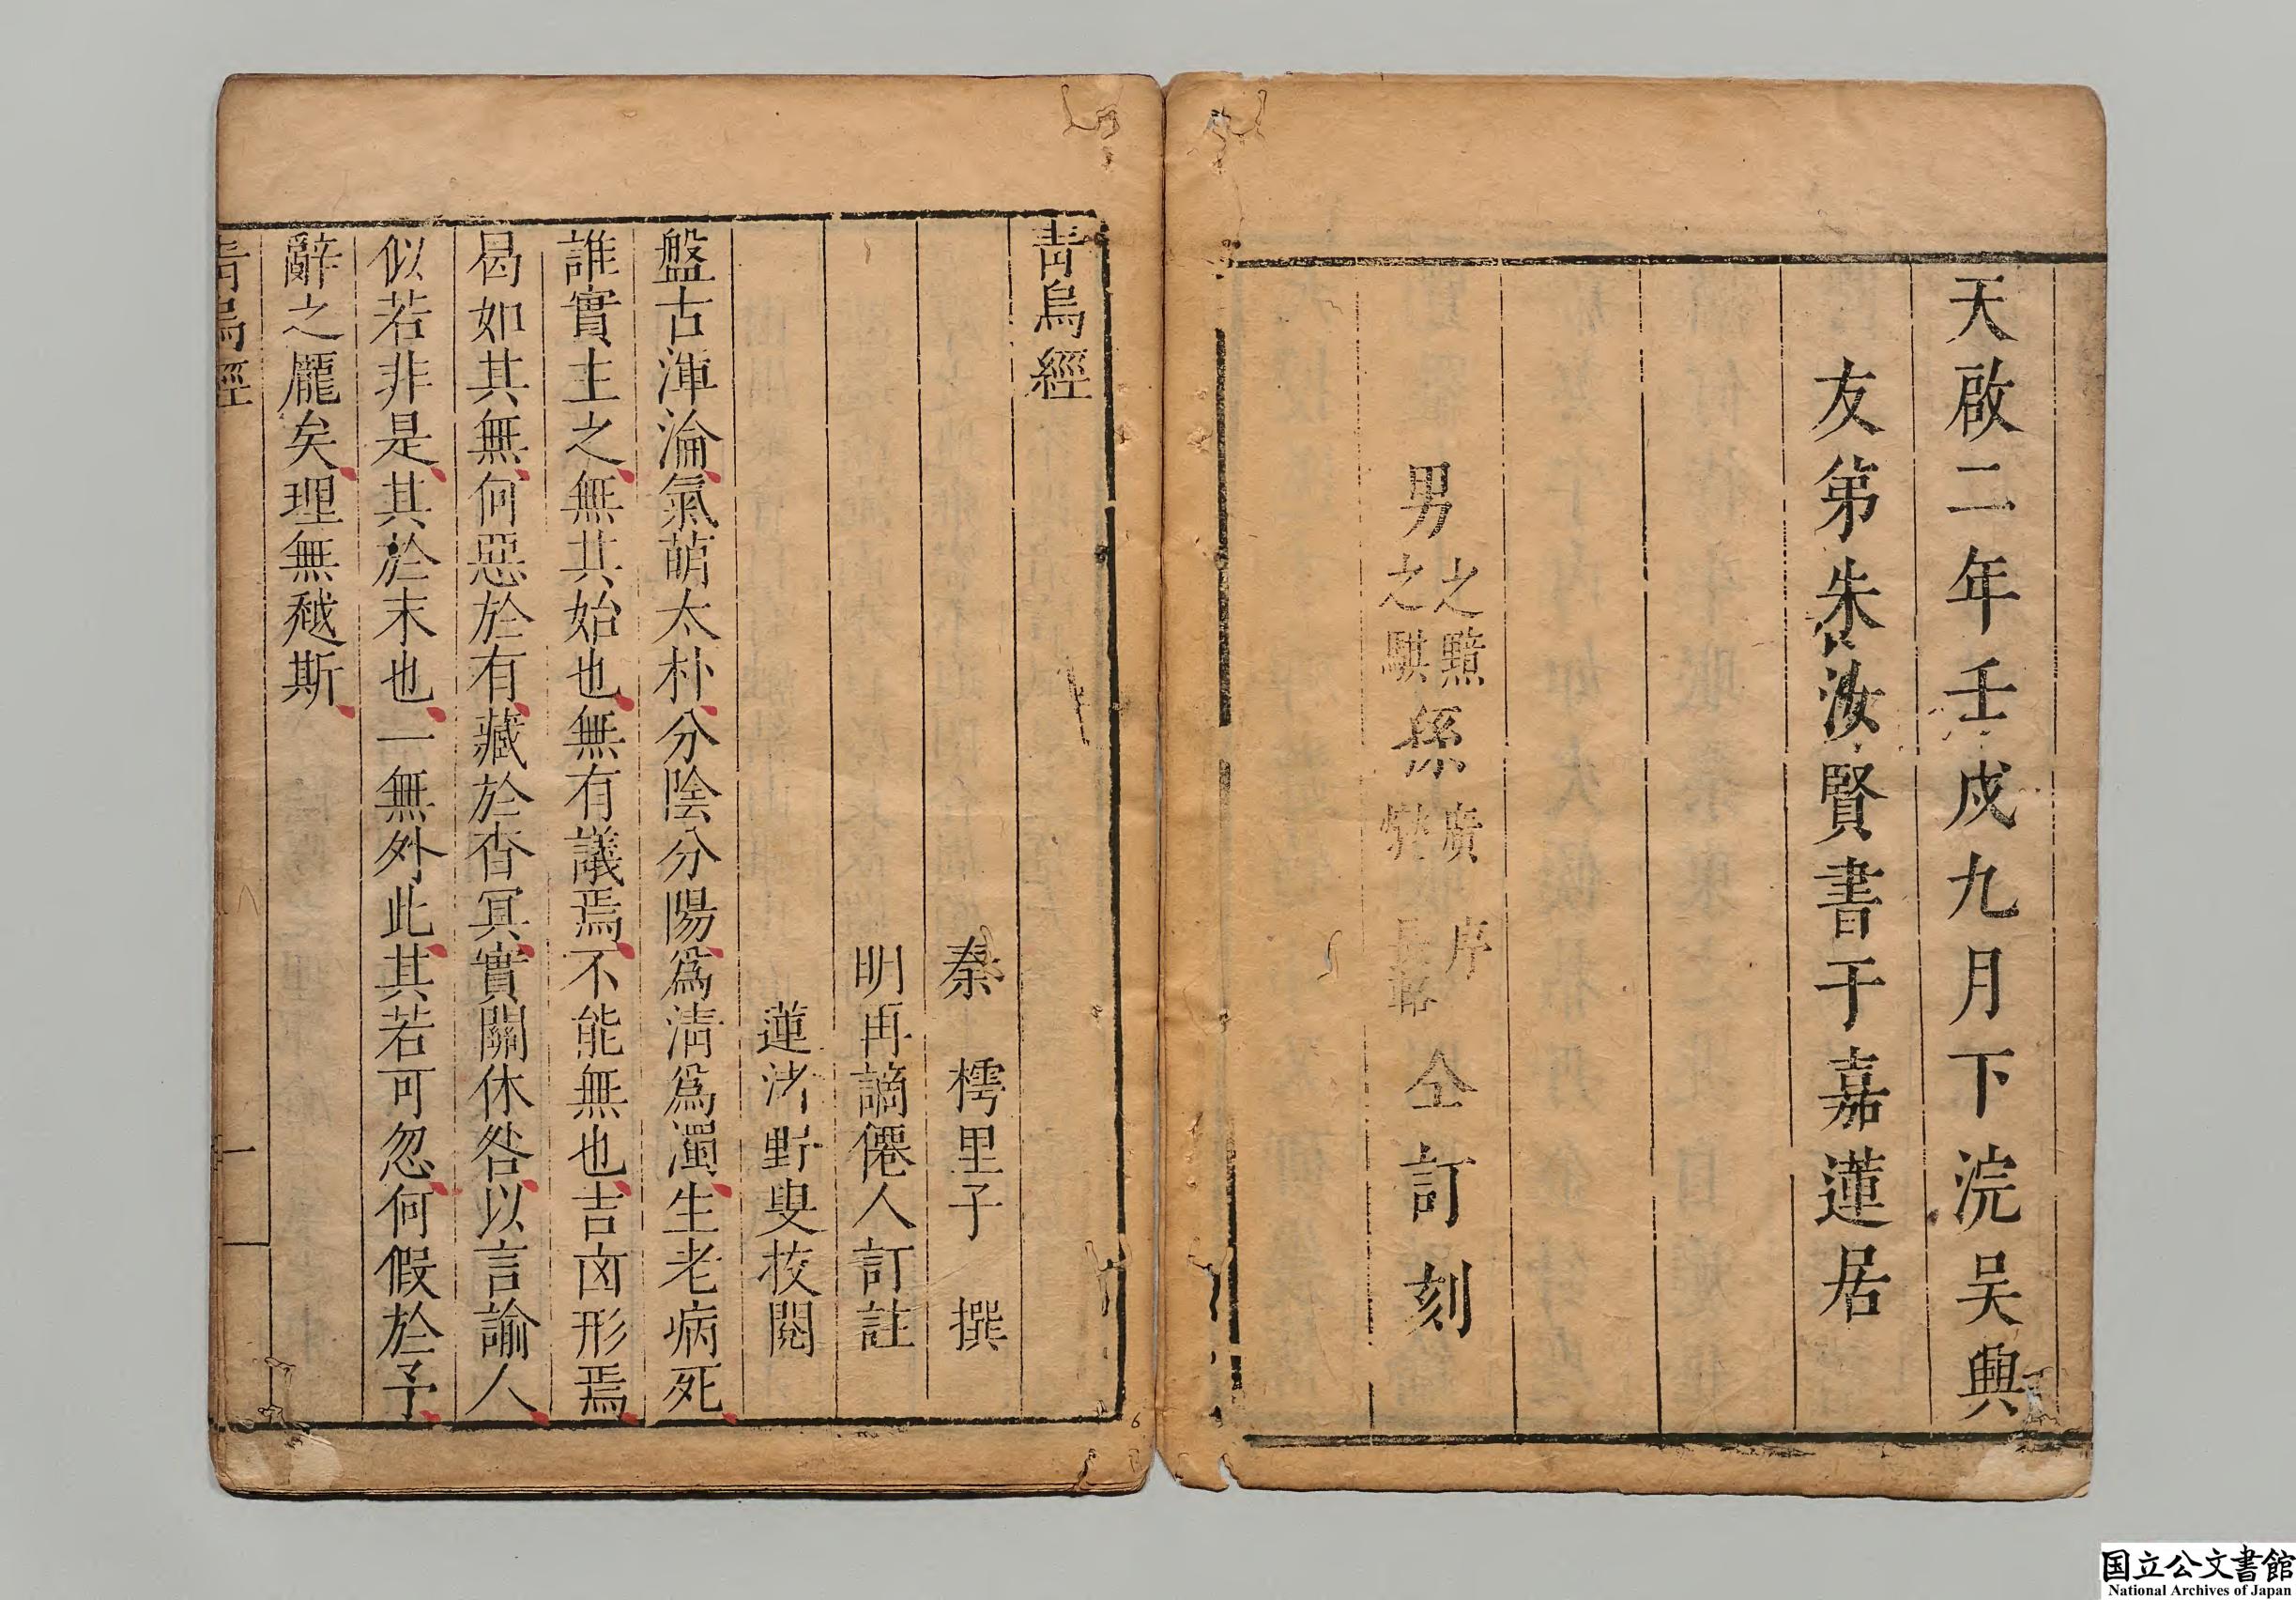 天啟二年壬戌九月下浣吴興
友弟朱汝賢書于嘉蓮居
男之黯之騏孫廣序仝訂刻
青烏經
秦 樗里子 撰
明再謫僊人訂註
蓮渚野叟挍閱
盤古渾淪氣萌太朴分陰分陽爲清爲濁生老病死
誰實主之無其始也無有議焉不能無也吉凶形焉
曷如其無何惡於有藏於杳冥實關休咎以言諭人
似若非是其於末也一無外此其若可忽何假於予
辭之龐矣理無越斯
青烏經
一
国立公文書館
National Archives of Japan